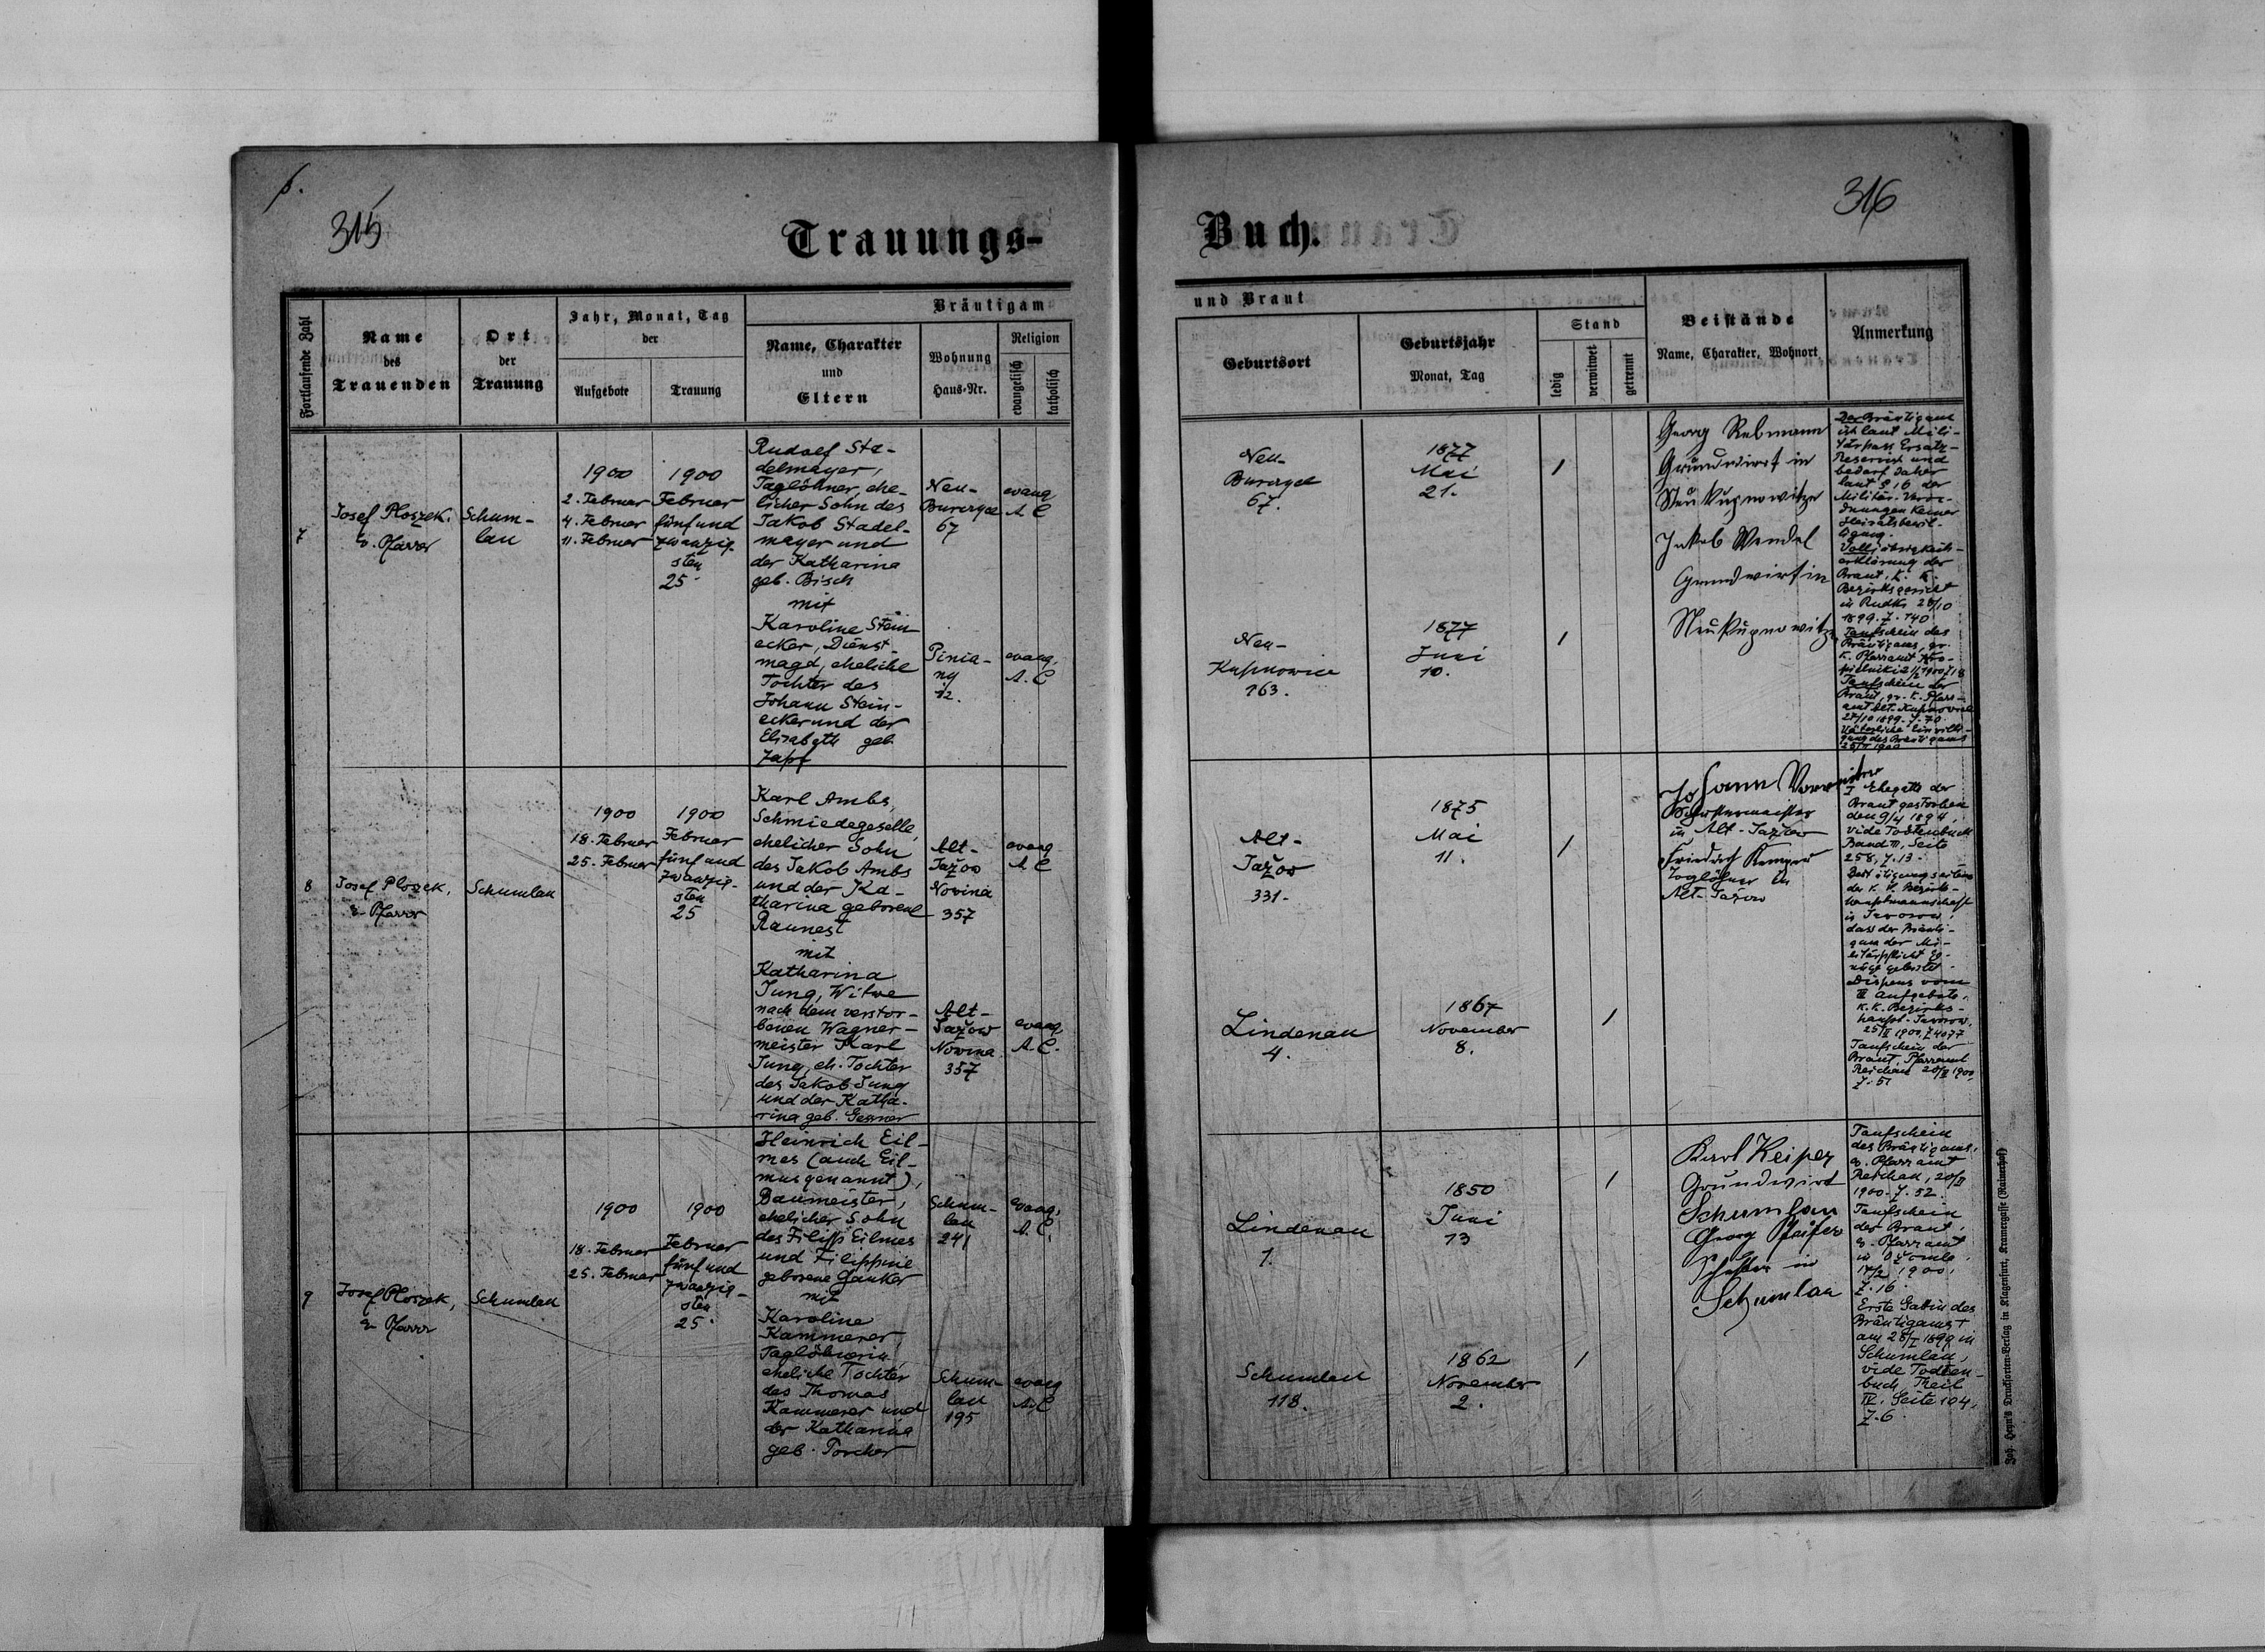 6.
315
Trauungs-
Fortlaufende Zahl
Name
des
Trauenden
Ort
der
Trauung
Jahr, Monat, Tag
der
Aufgebote
Trauung
Bräutigam
Name, Charakter
und
Eltern
Wohnung
Haus-Nr.
Religion
evangelisch
katholisch
7
Josef Ploszek,
ev. Pfarrer
Schum-
lau
1900
2. Februar
4. Februar
11. Februar
1900
Februar
fünf und
zwanzig-
sten
25.
Rudolf Sta-
delmayer,
Taglöhner, ehe-
licher Sohn des
Jakob Stadel-
mayer und
der Katharina
geb. Bisch
mit
Karoline Stein
ecker, Dienst-
magd, eheliche
Tochter des
Johann Stein-
ecker und der
Elisabeth geb.
Zapf
Neu-
Burczyce
67
evang
A C
Pinia-
ny
12.
evang.
A. C
8
Josef Ploszek,
ev. Pfarrer
Schumlau
1900
18. Februar
25. Februar
1900
Februar
fünf und
zwanzig-
sten
25
Karl Ambs,
Schmiedegeselle,
ehelicher Sohn
des Jakob Ambs
und der Ka-
tharina geborene
Raunest
mit
Katharina
Jung, Witwe
nach dem verstor-
benen Wagner-
meister Karl
Jung, eh. Tochter
des Jakob Jung
und der Katha-
rina geb. Gessner
Alt-
Jažow
Nowina
357
evang
A C
Alt-
Jažow
Nowina
357
evang.
A. C.
9
Josef Ploszek,
ev. Pfarrer
Schumlau
1900
18. Februar
25. Februar
1900
Februar
fünf und
zwanzig-
sten
25.
Heinrich Eil-
mes (auch Eil-
mus genannt),
Baumeister,
ehelicher Sohn
des Filipp Eilmes
und Filippine
geborene Ganker
mit
Karoline
Kammerer,
Taglöhnerin,
eheliche Tochter
des Thomas
Kammerer und
der Katharina
geb. Porcher
Schum-
lau
241
evang.
A. C.
Schum-
lau
195
evang
A. C
316
Buch.
und Braut
Geburtsort
Geburtsjahr
Monat, Tag
Stand
ledig
verwitwet
getrennt
Beistände
Name, Charakter, Wohnort
Anmerkung
Neu-
Burczyce
67.
1877
Mai
21.
1
Neu-
Kupnowice
163.
1877
Juni
10.
1
Georg Rebmann
Grundwirt in
Neukupnowitze
Jakob Wendel
Grundwirt in
Neukupnowitze
Der Bräutigam
ist laut Mili-
tärpass Ersatz-
Reservist und
bedarf daher
laut § 16 der
Militär-Veror-
dnungen keiner
Heiratsbewil-
ligung.
Volljährigkeits-
erklärung der
Braut, k. k.
Bezirksgericht
in Rudki 28/10
1899. Z. 740
Taufschein des
Bräutigams, gr.
k. Pfarramt
1900
Taufschein der
Braut, gr. k. Pfarr-
amt Alt-Kupnowice
27/10 1899. Z. 70.
Väterliche Einwilli-
gung des Bräutigams
25/II 1900
Alt-
Jažow
331.
1875
Mai
11.
1
Lindenau
4.
1867
November
8.
1
Johann
in Alt-Jažow
Friedrich Kemper
Taglöhner in
Alt-Jažow
I Ehegatte der
Braut gestorben
den 9/4 1894,
vide Todtenbuch
Band III, Seite
258, Z. 13.
Bestätigung seitens
der k. k. Bezirks-
hauptmannschaft
in Jaworow,
dass der Bräuti-
gam der Mi-
litärpflicht Ge-
nüge geleistet.
Dispens vom
III Aufgebote,
k. k. Bezirks-
haupt. Jaworow,
25/II 1900, Z 4077
Taufschein der
Braut, Pfarramt
Reichau 20/II 1900,
Z. 51
Lindenau
1.
1850
Juni
13
1
Schumlau
118.
1862
November
2.
1
Karl Keiper
Grundwirt
Schumlau
Georg Pfeifer
in
Schumlau
Taufschein
des Bräutigams,
ev. Pfarramt
Reichau, 20/II
1900. Z. 52.
Taufschein
der Braut,
ev. Pfarramt
in
17/2 1900.
Z. 16.
Erste Gattin des
Bräutigams †
am 28/I 1899 in
Schumlau,
vide Todten-
buch Theil
IV. Seite 104,
Z. 6.
Joh. Heyn's Drucksorten-Verlag in Klagenfurt, Kramergasse (Rainerhof)